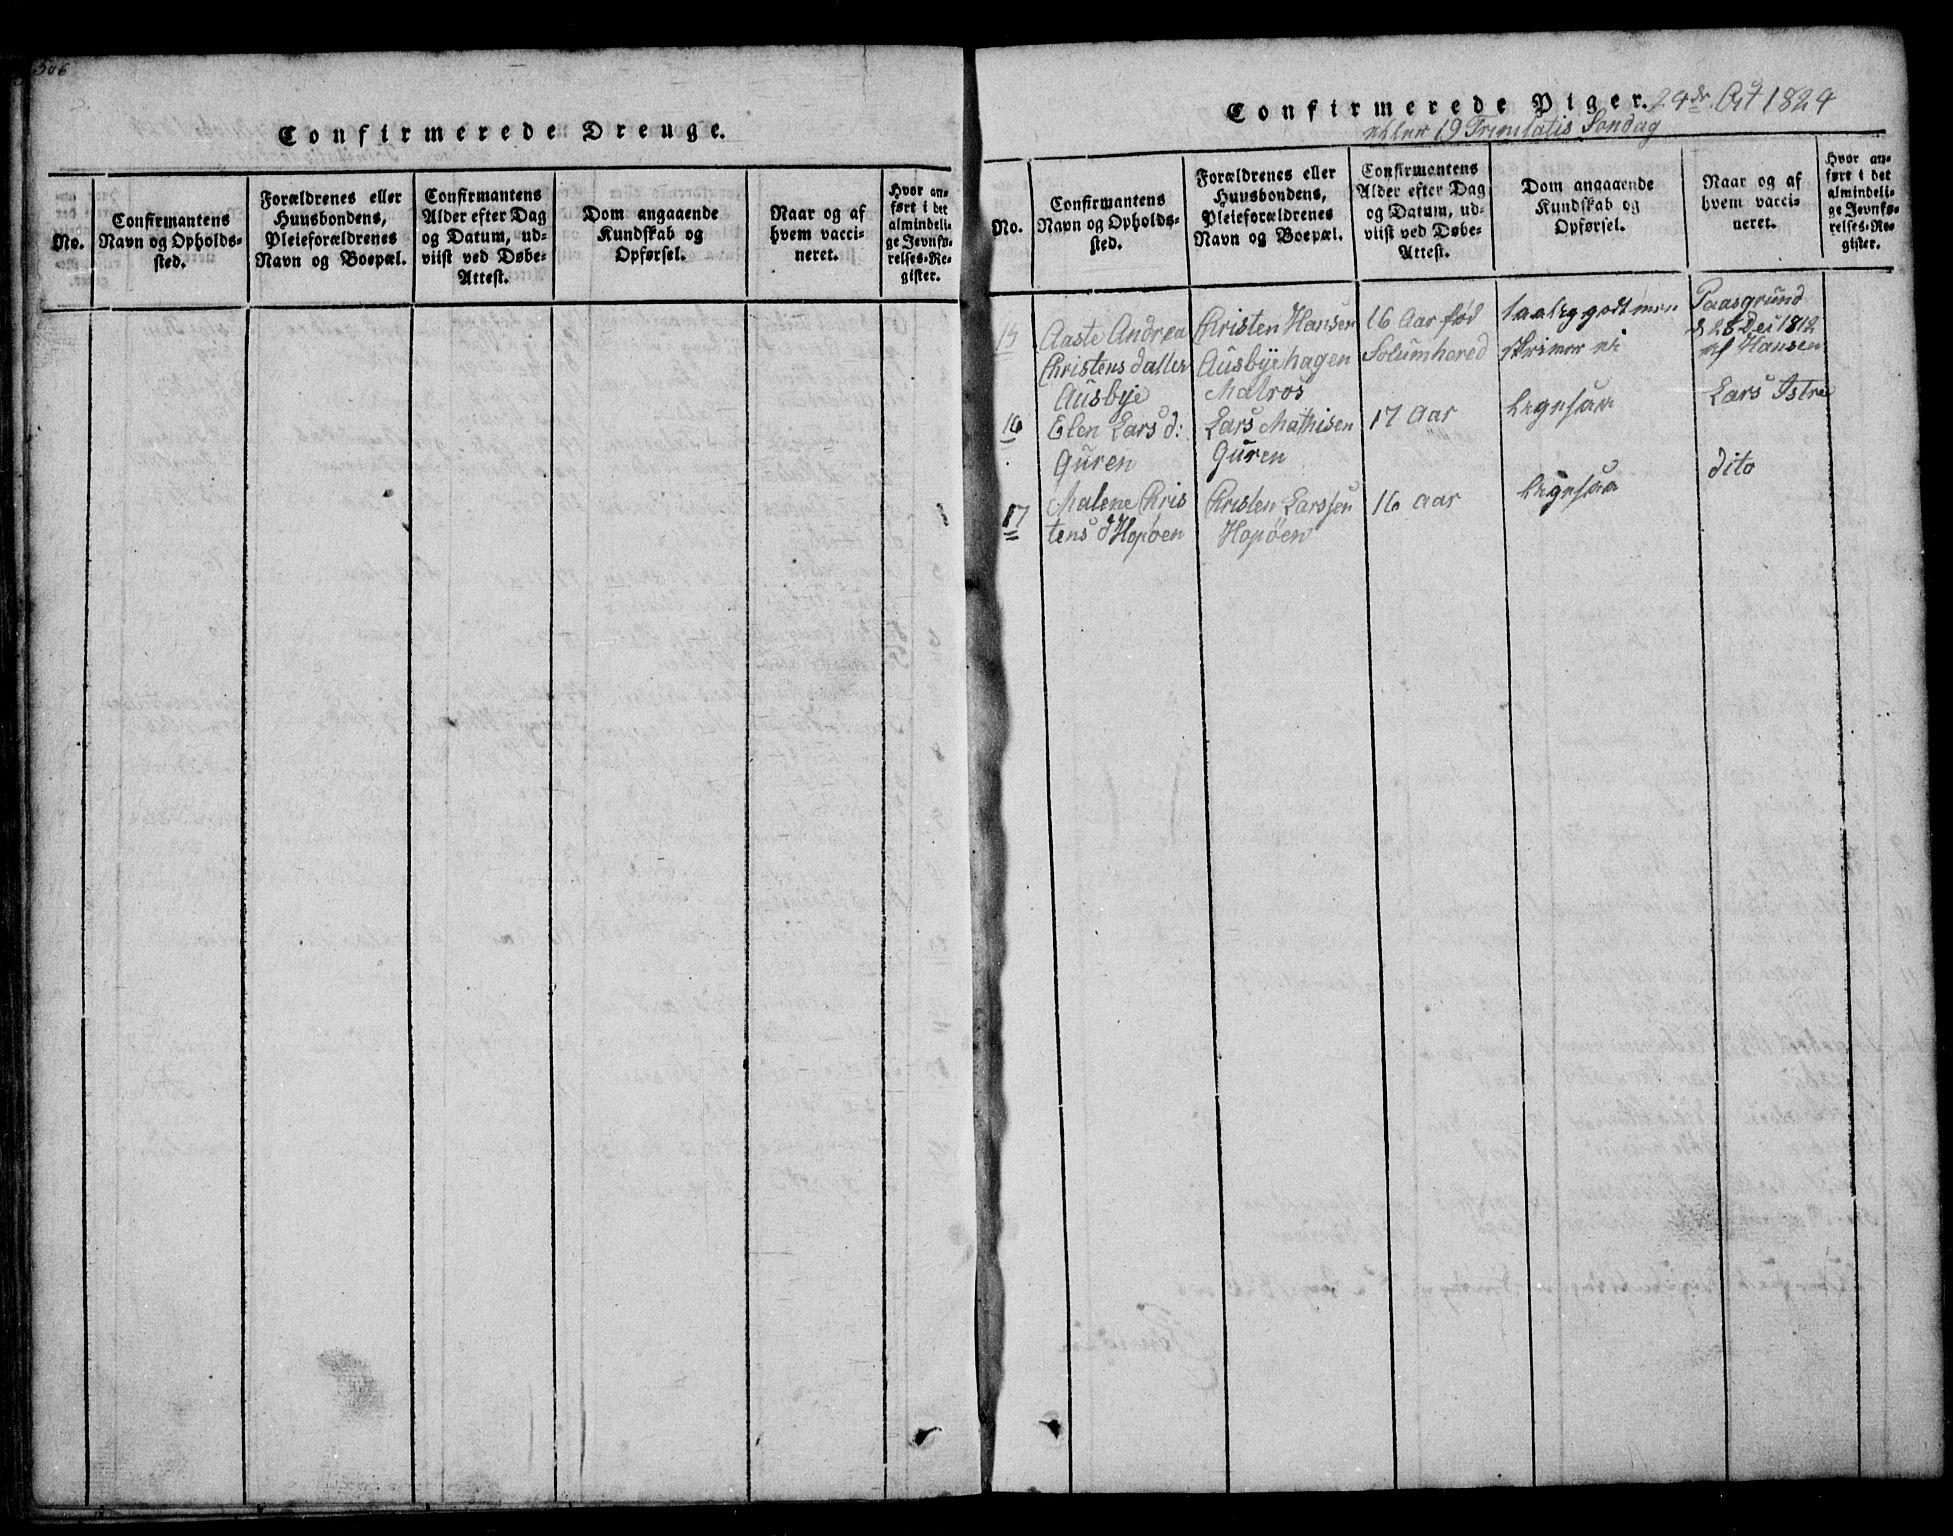 506
Confirmerede Drenge.
No.
Confirmantens
Navn og Opholds-
sted.
Forældrenes eller
Huusbondens,
Pleieforældrenes
Navn og Boepæl.
Confirmantens
Alder efter Dag
og Datum, ud-
viist ved Døbe-
Attest.
Dom angaaende
Kundskab og
Opførsel.
Naar og af
hvem vacci-
neret.
Hvor an-
ført i det
almindeli-
ge Jevnfø-
relses-Re-
gister.
Confirmerede Piger. 24de Oct 1824
19 Trinitatis Sondag
No.
Confirmantens
Navn og Opholds-
sted.
Forældrenes eller
Huusbondens,
Pleieforældrenes
Navn og Boepæl.
Confirmantens
Alder efter Dag
og Datum, ud-
viist ved Døbe-
Attest.
Dom angaaende
Kundskab og
Opførsel.
Naar og af
hvem vacci-
neret.
Hvor an-
ført i det
almindeli-
ge Jevnfø-
relses-Re-
gister.
15
Aaste Andrea
Christensdatter
Ausbye
Christen Hansen
Ausbyehagen
Matros
16 Aar fød
Solumhered
godt men
skriver ei
Paasgrund
d 28 Dec 1812
af Hansen
16
Elen Lars d:
Guren
Lars Mathisen
Guren
17 Aar
ligesaa
Lars Istre
17
Malene Chris
tens d Hopøen
Christen Larssen
Hopøen
16 Aar
ligesaa
dito